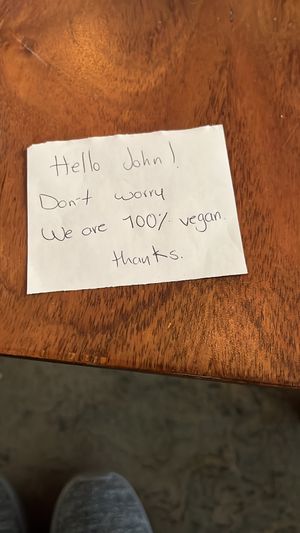 Hello John!
Don't worry
We are 100% vegan.
thanks.